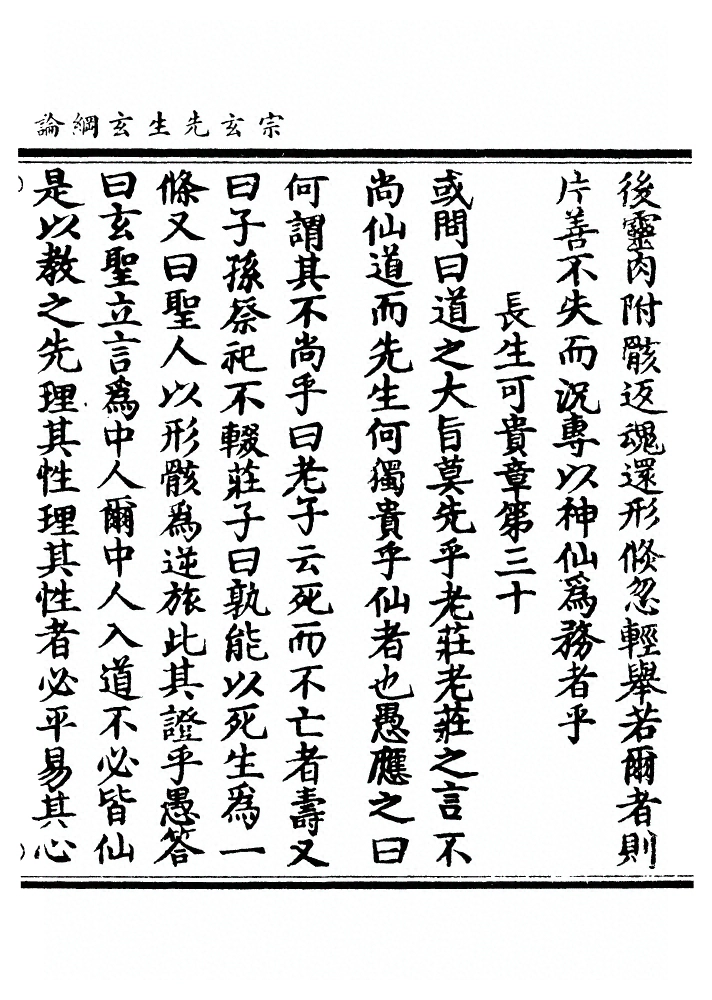 宗玄先生玄綱論
後靈肉附骸返魂還形倐忽輕舉若爾者則
片善不失而況專以神仙為務者乎
長生可貴章第三十
或問曰道之大旨莫先乎老莊老莊之言不
尚仙道而先生何獨貴乎仙者也愚應之曰
何謂其不尚乎曰老子云死而不亡者壽又
曰子孫祭祀不輟莊子曰孰能以死生為一
條又曰聖人以形骸為逆旅此其證乎愚答
曰玄聖立言為中人爾中人入道不必皆仙
是以教之先理其性理其性者必平易其心